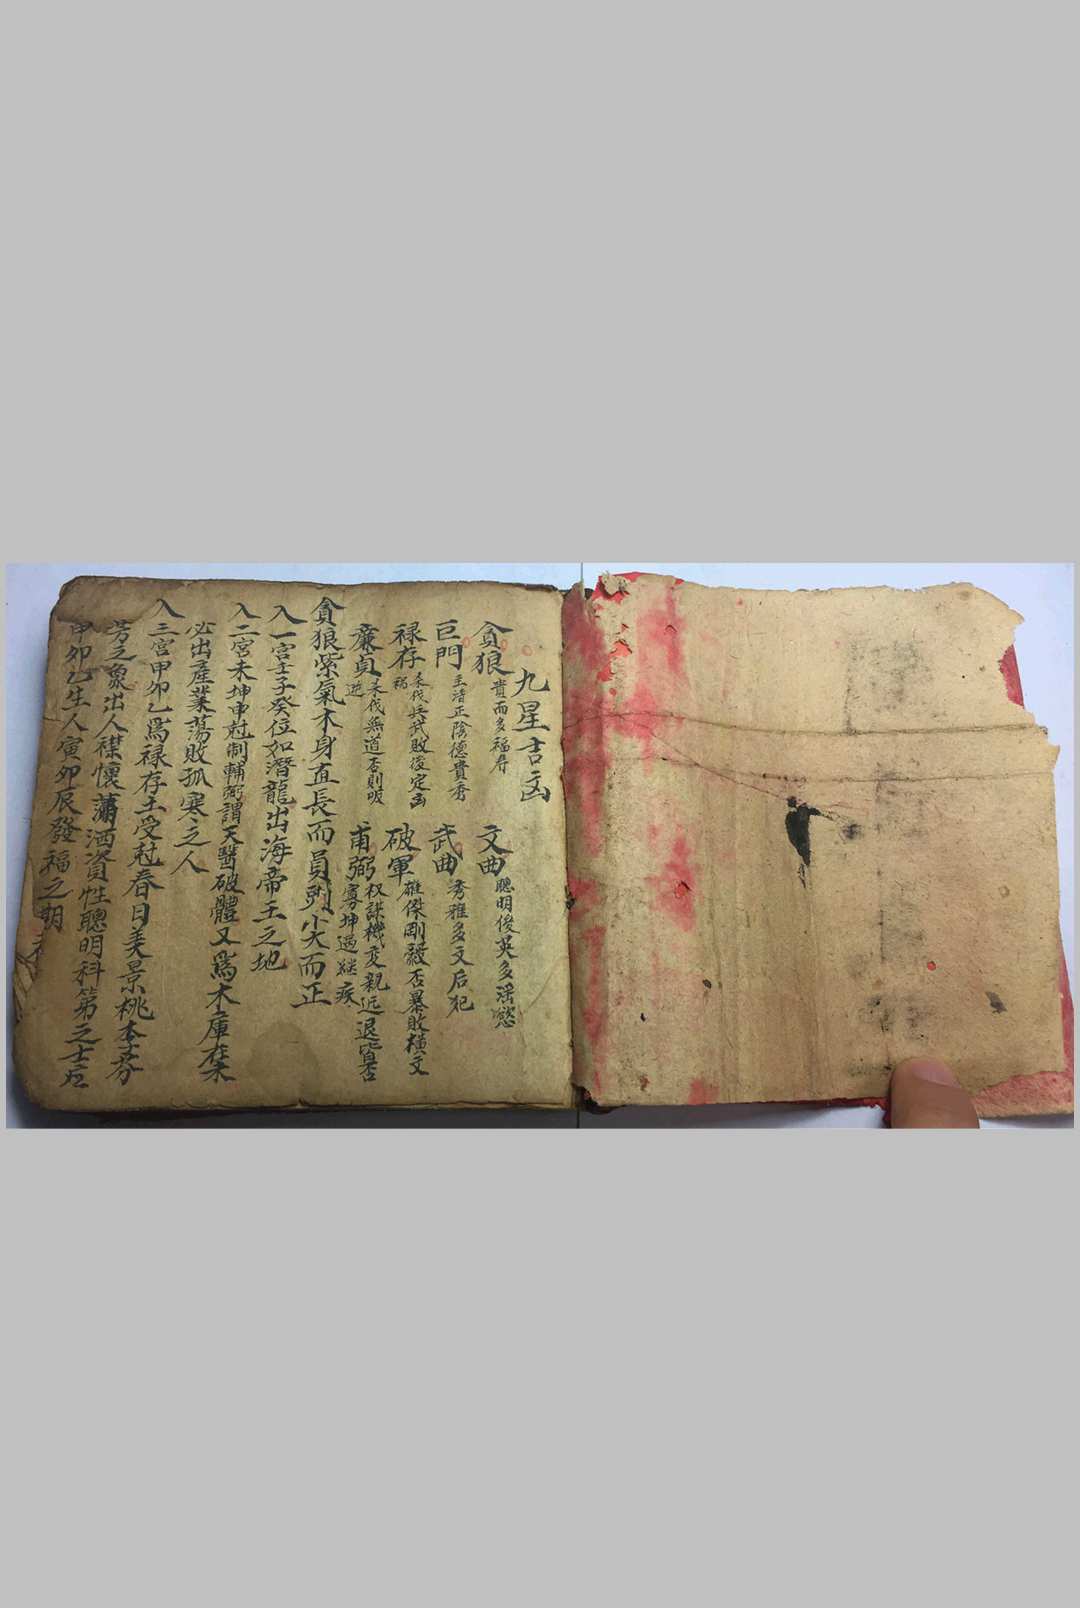 九星吉凶
貪狼 貴而多福壽 文曲 聰明俊英多淫慾
巨門 主清正陰德貴秀 武曲 秀雅多文后犯
禄存 禍 破軍 雄傑剛毅否暴敗橫文
廉貞 逆 甫弼 权謀機变親近退官否
貪狼紫氣木身直長而員興尖而正
入一宮壬子癸位如潛龍出海帝王之地
入二宮未坤申尅制輔弼謂天醫破體又爲木庫葉
必出產業蕩敗孤寒之人
入三宮甲卯乙爲禄存土受尅春日美景桃李芬
芳之象出人襟懷瀟洒資性聰明科第之士应
甲卯乙生人寅卯辰發福之期